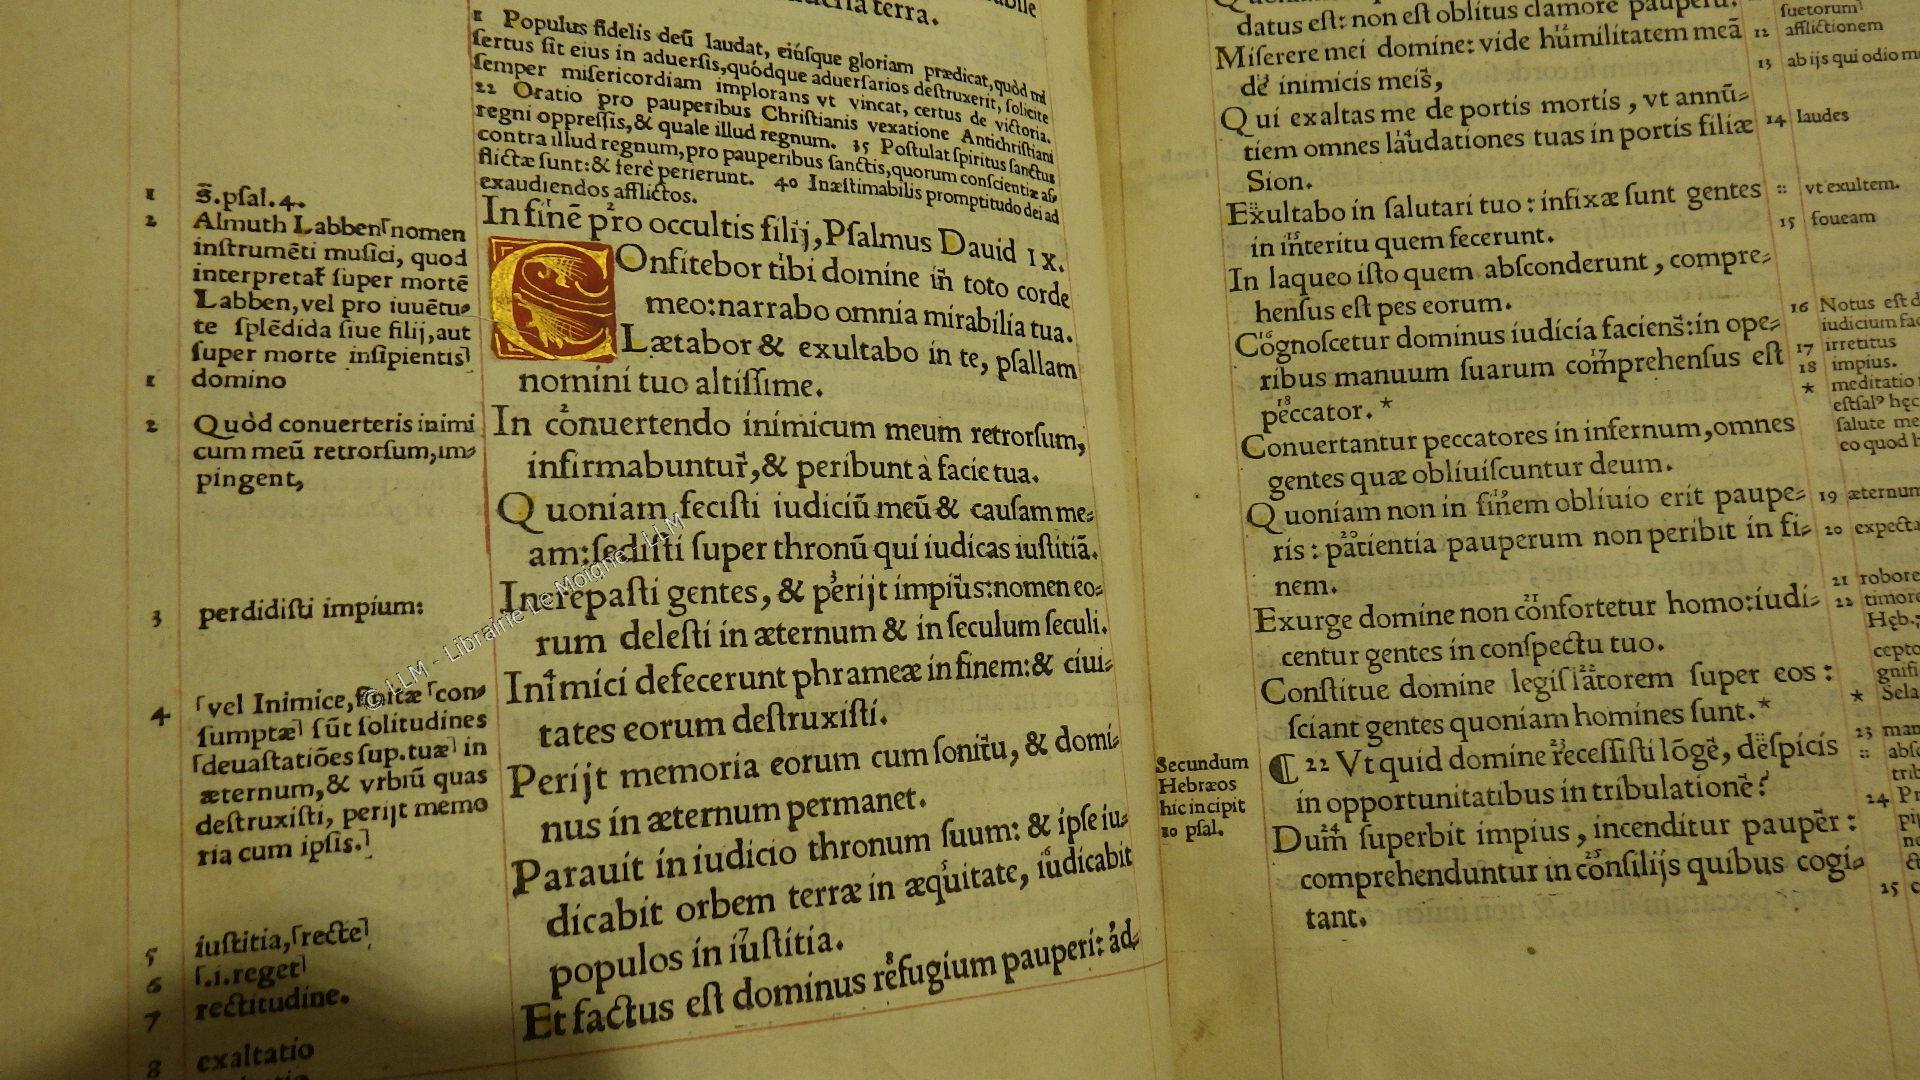 terra.
1 Populus fidelis deū laudat, eiúsque gloriam prædicat, quòd
ſertus ſit eius in aduerſis, quódque aduerſarios deſtruxerit, ſolicite
ſemper miſericordiam implorans vt vincat, certus de victoria.
22 Oratio pro pauperibus Chriſtianis vexatione Antichriſtiani
regni oppreſſis, & quale illud regnum. 35 Poſtulat ſpiritus ſanctus
contra illud regnum, pro pauperibus ſanctis, quorum conſcientiæ af⸗
flictæ ſunt: & ferè perierunt. 40 Inæſtimabilis promptitudo dei ad
exaudiendos afflictos.
In finē pro occultis filij, Pſalmus Dauid IX.
COnfitebor tibi domine in toto corde
meo: narrabo omnia mirabilia tua.
Lætabor & exultabo in te, pſallam
nomini tuo altiſſime.
In conuertendo inimicum meum retrorſum,
infirmabuntur, & peribunt à facie tua.
Quoniam feciſti iudiciū meū & cauſam me⸗
am: ſediſti ſuper thronū qui iudicas iuſtitiā.
Increpaſti gentes, & perijt impius: nomen eo⸗
rum deleſti in æternum & in ſeculum ſeculi.
Inimici defecerunt phrameæ in finem: & ciui⸗
tates eorum deſtruxiſti.
Perijt memoria eorum cum ſonitu, & domi⸗
nus in æternum permanet.
Parauit in iudicio thronum ſuum: & ipſe iu⸗
dicabit orbem terræ in æquitate, iudicabit
populos in iuſtitia.
Et factus eſt dominus refugium pauperi: ad⸗
1 s̄.pſal.4.
2 Almuth Labben⸢nomen
inſtrumēti muſici, quod
interpretat̄ ſuper mortē
Labben, vel pro iuuētu⸗
te ſplēdida ſiue filij, aut
ſuper morte inſipientis⸣
1 domino
2 Quòd conuerteris inimi
cum meū retrorſum, im⸗
pingent,
3 perdidiſti impium:
4 ⸢vel Inimice, finitæ ⸢con⸗
ſumptæ⸣ ſūt ſolitudines
⸢deuaſtatiões ſup. tuæ⸣ in
æternum, & vrbiū quas
deſtruxiſti, perijt memo
ria cum ipſis.⸣
5 iuſtitia, ⸢recte⸣
6 ⸢.i. reget⸣
7 rectitudine.
8 exaltatio
datus eſt: non eſt oblitus clamorē
Miſerere mei domine: vide humilitatem meā
de inimicis meis,
Qui exaltas me de portis mortis, vt annū⸗
tiem omnes laudationes tuas in portis filiæ
Sion.
Exultabo in ſalutari tuo: infixæ ſunt gentes
in interitu quem fecerunt.
In laqueo iſto quem abſconderunt, compre⸗
henſus eſt pes eorum.
Cognoſcetur dominus iudicia faciens: in ope⸗
ribus manuum ſuarum comprehenſus eſt
peccator.*
Conuertantur peccatores in infernum, omnes
gentes quæ obliuiſcuntur deum.
Quoniam non in finem obliuio erit paupe⸗
ris: patientia pauperum non peribit in fi⸗
nem.
Exurge domine non confortetur homo: iudi⸗
centur gentes in conſpectu tuo.
Conſtitue domine legiſlatorem ſuper eos:
ſciant gentes quoniam homines ſunt.*
¶ 22 Vt quid domine receſſiſti lōge, deſpicis
in opportunitatibus in tribulatione?
Dum ſuperbit impius, incenditur pauper:
comprehenduntur in conſilijs quibus cogi⸗
tant.
Secundum
Hebræos
hic incipit
10 pſal.
ſuetorum⸣
12 afflictionem
13 ab ijs qui odio
14 laudes
:: vt exultem.
15 foueam
16 Notus eſt
iudicium
17 irretitus
18 impius.
* meditatio
ſalute
eo quod
19 æternum
20
21
22
Heb.
* Sela
23
::
24
25
© LLM - Librairie Le Moigne - LLM